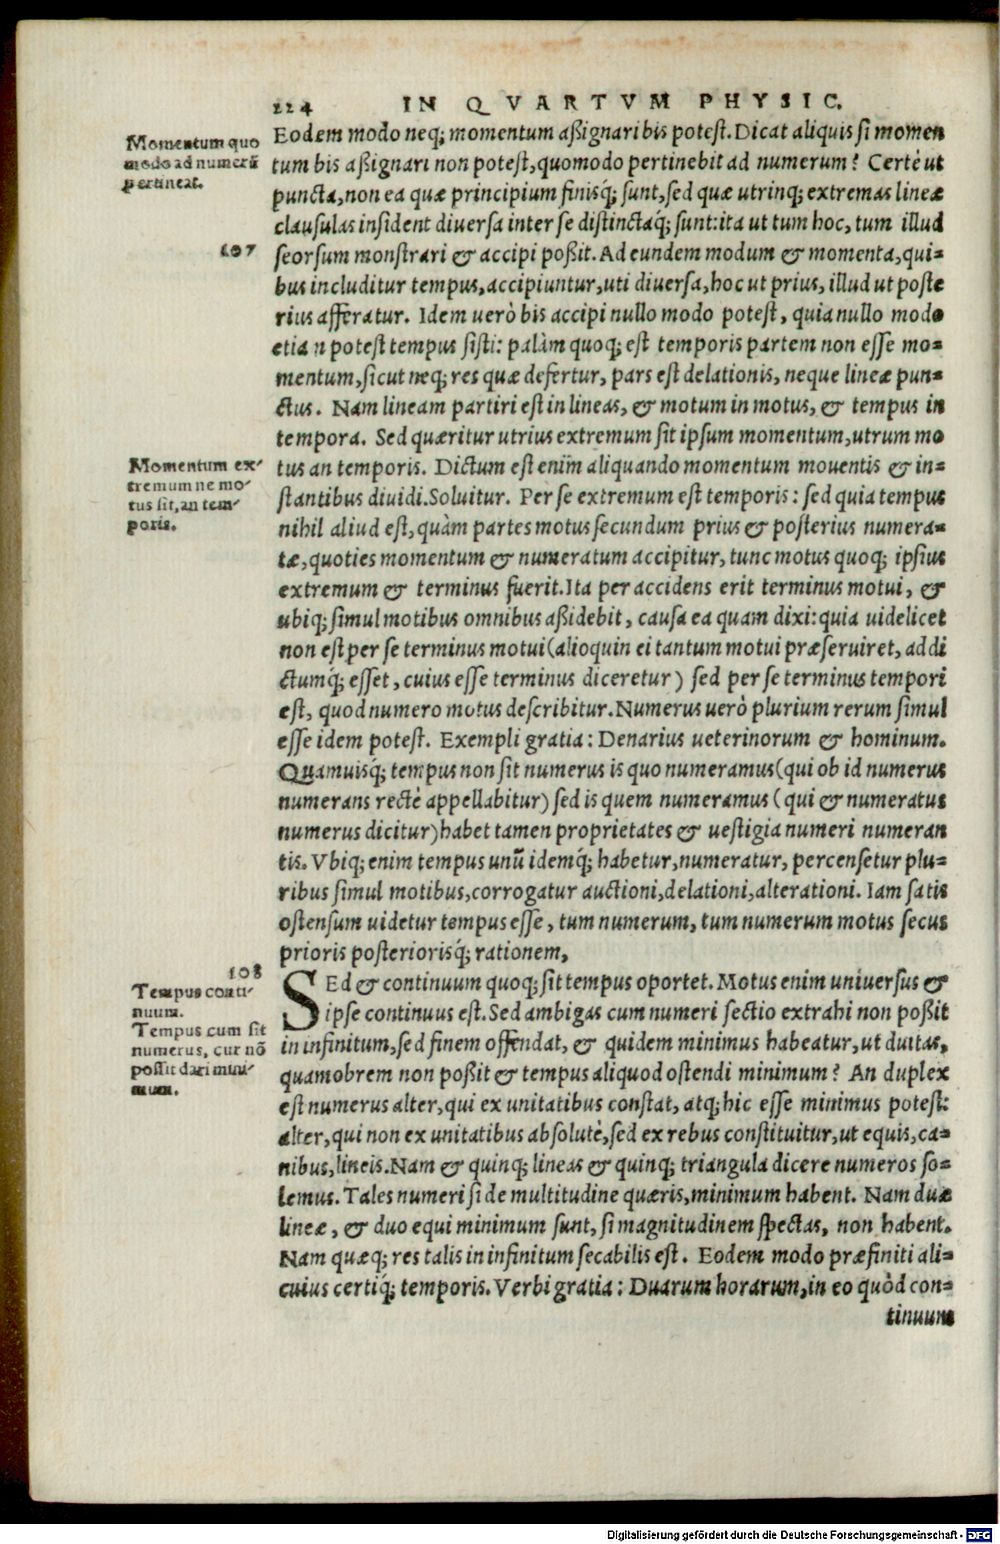 224 IN QVARTVM PHYSIC.
Momentum quo
modo ad numerũ
pertineat.
107
Momentum ex-
tremum ne mo-
tus sit, an tem-
poris.
108
Tempus conti-
nuum.
Tempus cum sit
numerus, cur nõ
possit dari mini-
mum.
Eodem modo neq; momentum aßignari bis potest. Dicat aliquis si momen
tum bis aßignari non potest, quomodo pertinebit ad numerum? Certè ut
puncta, non ea quæ principium finisq; sunt, sed quæ utrinq; extremas lineæ
clausulas insident diuersa inter se distinctaq; sunt: ita ut tum hoc, tum illud
seorsum monstrari & accipi poßit. Ad eundem modum & momenta, qui-
bus includitur tempus, accipiuntur, uti diuersa, hoc ut prius, illud ut poste
rius afferatur. Idem uerò bis accipi nullo modo potest, quia nullo modo
etiam potest tempus sisti: palàm quoq; est temporis partem non esse mo-
mentum, sicut neq; res quæ defertur, pars est delationis, neque lineæ pun-
ctus. Nam lineam partiri est in lineas, & motum in motus, & tempus in
tempora. Sed quæritur utrius extremum sit ipsum momentum, utrum mo
tus an temporis. Dictum est enim aliquando momentum mouentis & in-
stantibus diuidi. Soluitur. Per se extremum est temporis: sed quia tempus
nihil aliud est, quàm partes motus secundum prius & posterius numera-
tæ, quoties momentum & numeratum accipitur, tunc motus quoq; ipsius
extremum & terminus fuerit. Ita per accidens erit terminus motui, &
ubiq; simul motibus omnibus aßidebit, causa ea quam dixi: quia uidelicet
non est per se terminus motui (alioquin ei tantum motui præseruiret, addi
ctumq́; esset, cuius esse terminus diceretur) sed per se terminus tempori
est, quod numero motus describitur. Numerus uerò plurium rerum simul
esse idem potest. Exempli gratia: Denarius ueterinorum & hominum.
Quamuisq́; tempus non sit numerus is quo numeramus (qui ob id numerus
numerans rectè appellabitur) sed is quem numeramus (qui & numeratus
numerus dicitur) habet tamen proprietates & uestigia numeri numeran
tis. Vbiq; enim tempus unũ idemq́; habetur, numeratur, percensetur plu-
ribus simul motibus, corrogatur auctioni, delationi, alterationi. Iam satis
ostensum uidetur tempus esse, tum numerum, tum numerum motus secus
prioris posteriorisq́; rationem,
SEd & continuum quoq; sit tempus oportet. Motus enim uniuersus &
ipse continuus est. Sed ambigas cum numeri sectio extrahi non poßit
in infinitum, sed finem offendat, & quidem minimus habeatur, ut duitas,
quamobrem non poßit & tempus aliquod ostendi minimum? An duplex
est numerus alter, qui ex unitatibus constat, atq; hic esse minimus potest:
alter, qui non ex unitatibus absolutè, sed ex rebus constituitur, ut equis, ca-
nibus, lineis. Nam & quinq; lineas & quinq; triangula dicere numeros so-
lemus. Tales numeri si de multitudine quæris, minimum habent. Nam duæ
lineæ, & duo equi minimum sunt, si magnitudinem spectas, non habent.
Nam quæq; res talis in infinitum secabilis est. Eodem modo præfiniti ali-
cuius certiq́; temporis. Verbi gratia: Duarum horarum, in eo quòd con-
tinuum
Digitalisierung gefördert durch die Deutsche Forschungsgemeinschaft - DFG